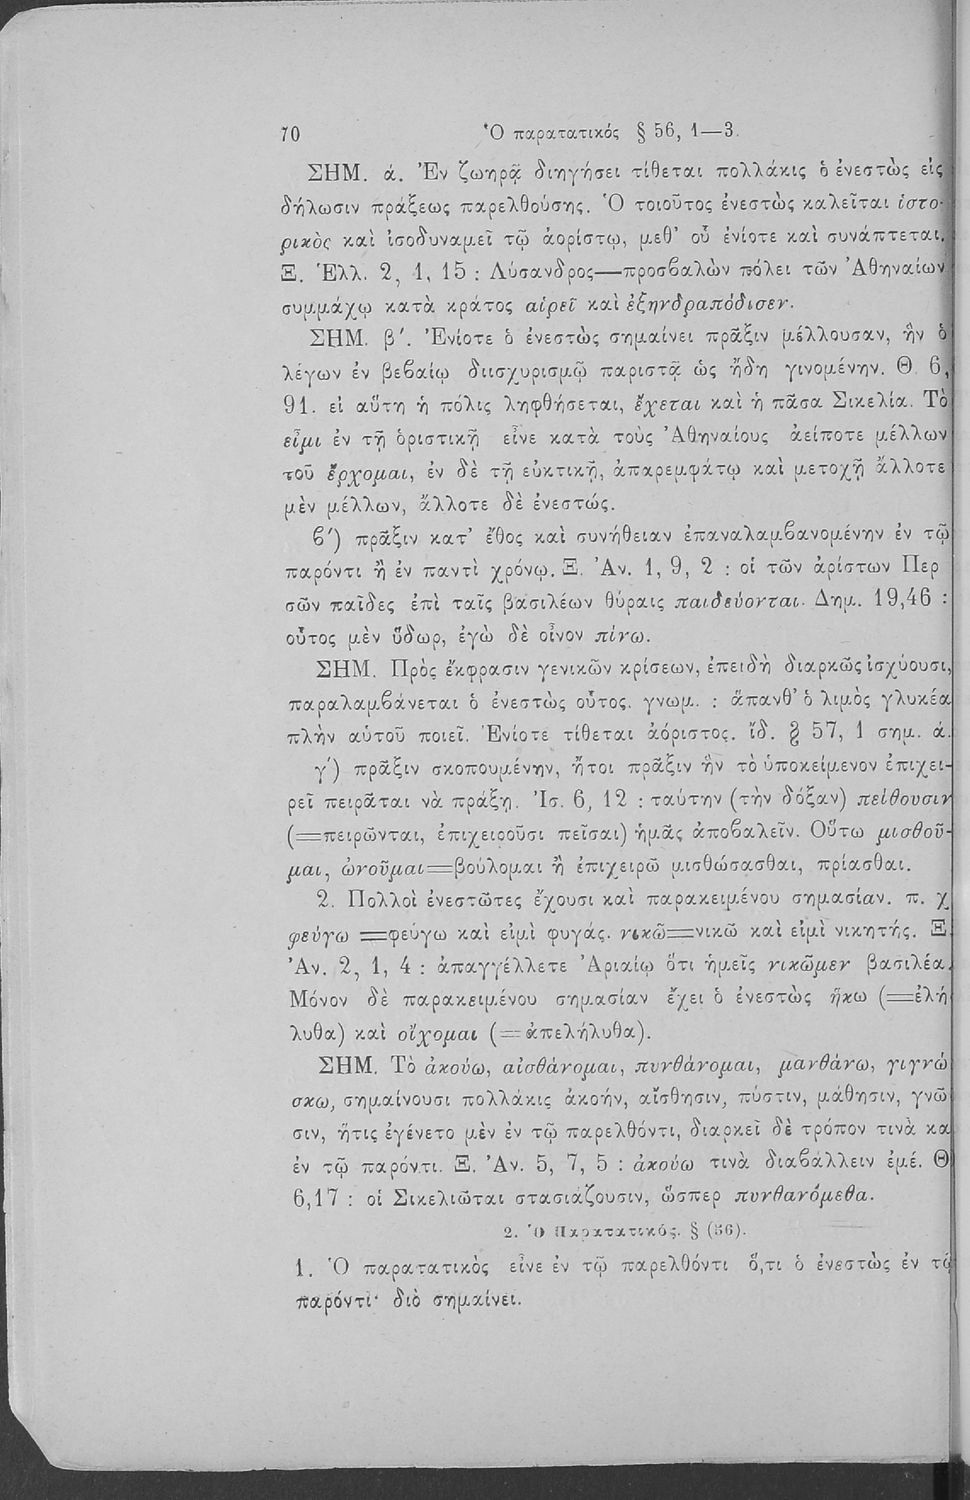 70 Ὁ παρατατικός § 56, 1—3.
ΣΗΜ. ά. Ἐν ζωηρᾷ διηγήσει τίθεται πολλάκις ὁ ἐνεστὼς εἰς
δήλωσιν πράξεως παρελθούσης. Ὁ τοιοῦτος ἐνεστὼς καλεῖται ἱστο-
ρικὸς καὶ ἰσοδυναμεῖ τῷ ἀορίστῳ, μεθ' οὗ ἐνίοτε καὶ συνάπτεται.
Ξ. Ἑλλ. 2, 1, 15 : Λύσανδρος—προσβαλὼν πόλει τῶν Ἀθηναίων
συμμάχῳ κατὰ κράτος αἱρεῖ καὶ ἐξηνδραπόδισεν.
ΣΗΜ. β'. Ἐνίοτε ὁ ἐνεστὼς σημαίνει πρᾶξιν μέλλουσαν, ἣν ὁ
λέγων ἐν βεβαίῳ διισχυρισμῷ παριστᾷ ὡς ἤδη γινομένην. Θ 6,
91. εἰ αὕτη ἡ πόλις ληφθήσεται, ἔχεται καὶ ἡ πᾶσα Σικελία. Τὸ
εἶμι ἐν τῇ ὁριστικῇ εἶνε κατὰ τοὺς Ἀθηναίους ἀείποτε μέλλων
τοῦ ἔρχομαι, ἐν δὲ τῇ εὐκτικῇ, ἀπαρεμφάτῳ καὶ μετοχῇ ἄλλοτε
μὲν μέλλων, ἄλλοτε δὲ ἐνεστώς.
β') πρᾶξιν κατ' ἔθος καὶ συνήθειαν ἐπαναλαμβανομένην ἐν τῷ
παρόντι ἢ ἐν παντὶ χρόνῳ. Ξ. Ἀν. 1, 9, 2 : οἱ τῶν ἀρίστων Περ
σῶν παῖδες ἐπὶ ταῖς βασιλέων θύραις παιδεύονται. Δημ. 19,46 :
οὗτος μὲν ὕδωρ, ἐγὼ δὲ οἶνον πίνω.
ΣΗΜ. Πρὸς ἔκφρασιν γενικῶν κρίσεων, ἐπειδὴ διαρκῶς ἰσχύουσι,
παραλαμβάνεται ὁ ἐνεστὼς οὗτος. γνωμ. : ἅπανθ' ὁ λιμὸς γλυκέα
πλὴν αὑτοῦ ποιεῖ. Ἐνίοτε τίθεται ἀόριστος. ἴδ. § 57, 1 σημ. ά.
γ') πρᾶξιν σκοπουμένην, ἤτοι πρᾶξιν ἣν τὸ ὑποκείμενον ἐπιχει-
ρεῖ πειρᾶται νὰ πράξῃ. Ἰσ. 6, 12 : ταύτην (τὴν δόξαν) πείθουσιν
(=πειρῶνται, ἐπιχειροῦσι πεῖσαι) ἡμᾶς ἀποβαλεῖν. Οὕτω μισθοῦ-
μαι, ὠνοῦμαι=βούλομαι ἢ ἐπιχειρῶ μισθώσασθαι, πρίασθαι.
2. Πολλοὶ ἐνεστῶτες ἔχουσι καὶ παρακειμένου σημασίαν. π. χ
φεύγω =φεύγω καὶ εἰμὶ φυγάς. νικῶ=νικῶ καὶ εἰμὶ νικητής. Ξ
Ἀν. 2, 1, 4 : ἀπαγγέλλετε Ἀριαίῳ ὅτι ἡμεῖς νικῶμεν βασιλέα.
Μόνον δὲ παρακειμένου σημασίαν ἔχει ὁ ἐνεστὼς ἥκω (=ἐλή
λυθα) καὶ οἴχομαι (=ἀπελήλυθα).
ΣΗΜ. Τὸ ἀκούω, αἰσθάνομαι, πυνθάνομαι, μανθάνω, γιγνώ
σκω, σημαίνουσι πολλάκις ἀκοήν, αἴσθησιν, πύστιν, μάθησιν, γνῶ
σιν, ἥτις ἐγένετο μὲν ἐν τῷ παρελθόντι, διαρκεῖ δὲ τρόπον τινὰ κα
ἐν τῷ παρόντι. Ξ. Ἀν. 5, 7, 5 : ἀκούω τινὰ διαβάλλειν ἐμέ. Θ
6,17 : οἱ Σικελιῶται στασιάζουσιν, ὥσπερ πυνθανόμεθα.
2. Ὁ Παρατατικός. § (56).
1. Ὁ παρατατικὸς εἶνε ἐν τῷ παρελθόντι ὅ,τι ὁ ἐνεστὼς ἐν τῷ
παρόντι· διὸ σημαίνει.